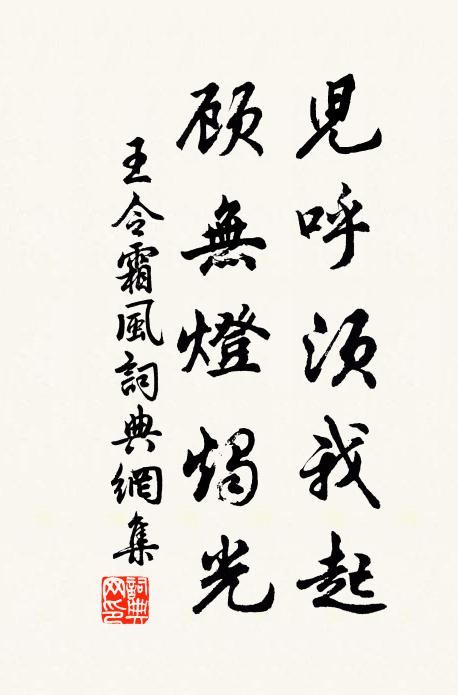 兒呼須我起
顧無燈燭光
王令霜風詞典網集
詞典網印